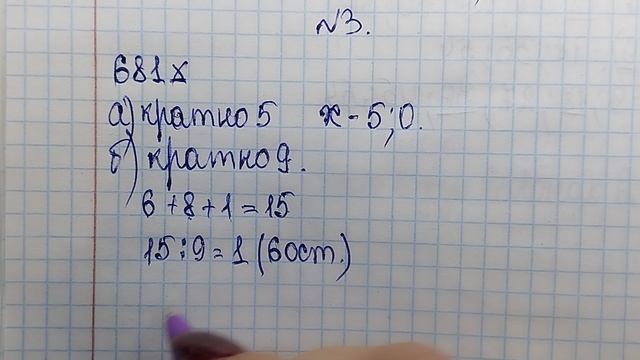 №3.
681x
а) кратно 5 x - 5; 0.
б) кратно 9.
6 + 8 + 1 = 15
15 : 9 = 1 (6 ост.)